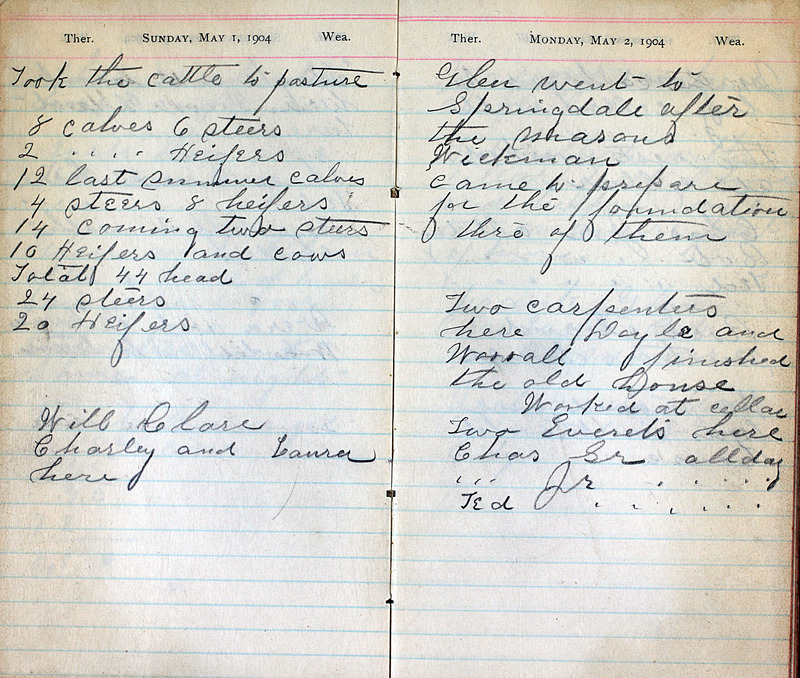 Ther. SUNDAY, MAY 1, 1904 Wea.
Took the cattle to pasture
8 calves 6 steers
2 . . . . Heifers
12 last summer calves
4 steers 8 heifers
14 coming two steers
10 Heifers and cows
Total 44 head
24 steers
20 Heifers
Will Clare
Charley and Laura
here
Ther. MONDAY, MAY 2, 1904 Wea.
Glen went to
Springdale after
the masons
Wickman
came to prepare
for the foundation
thre of them
Two carpenters
here Doyle and
Worrall finished
the old house
Worked at cellar
Two Everets here
Chas Sr allday
,,, Jr . . . . .
Ted . . . . . .